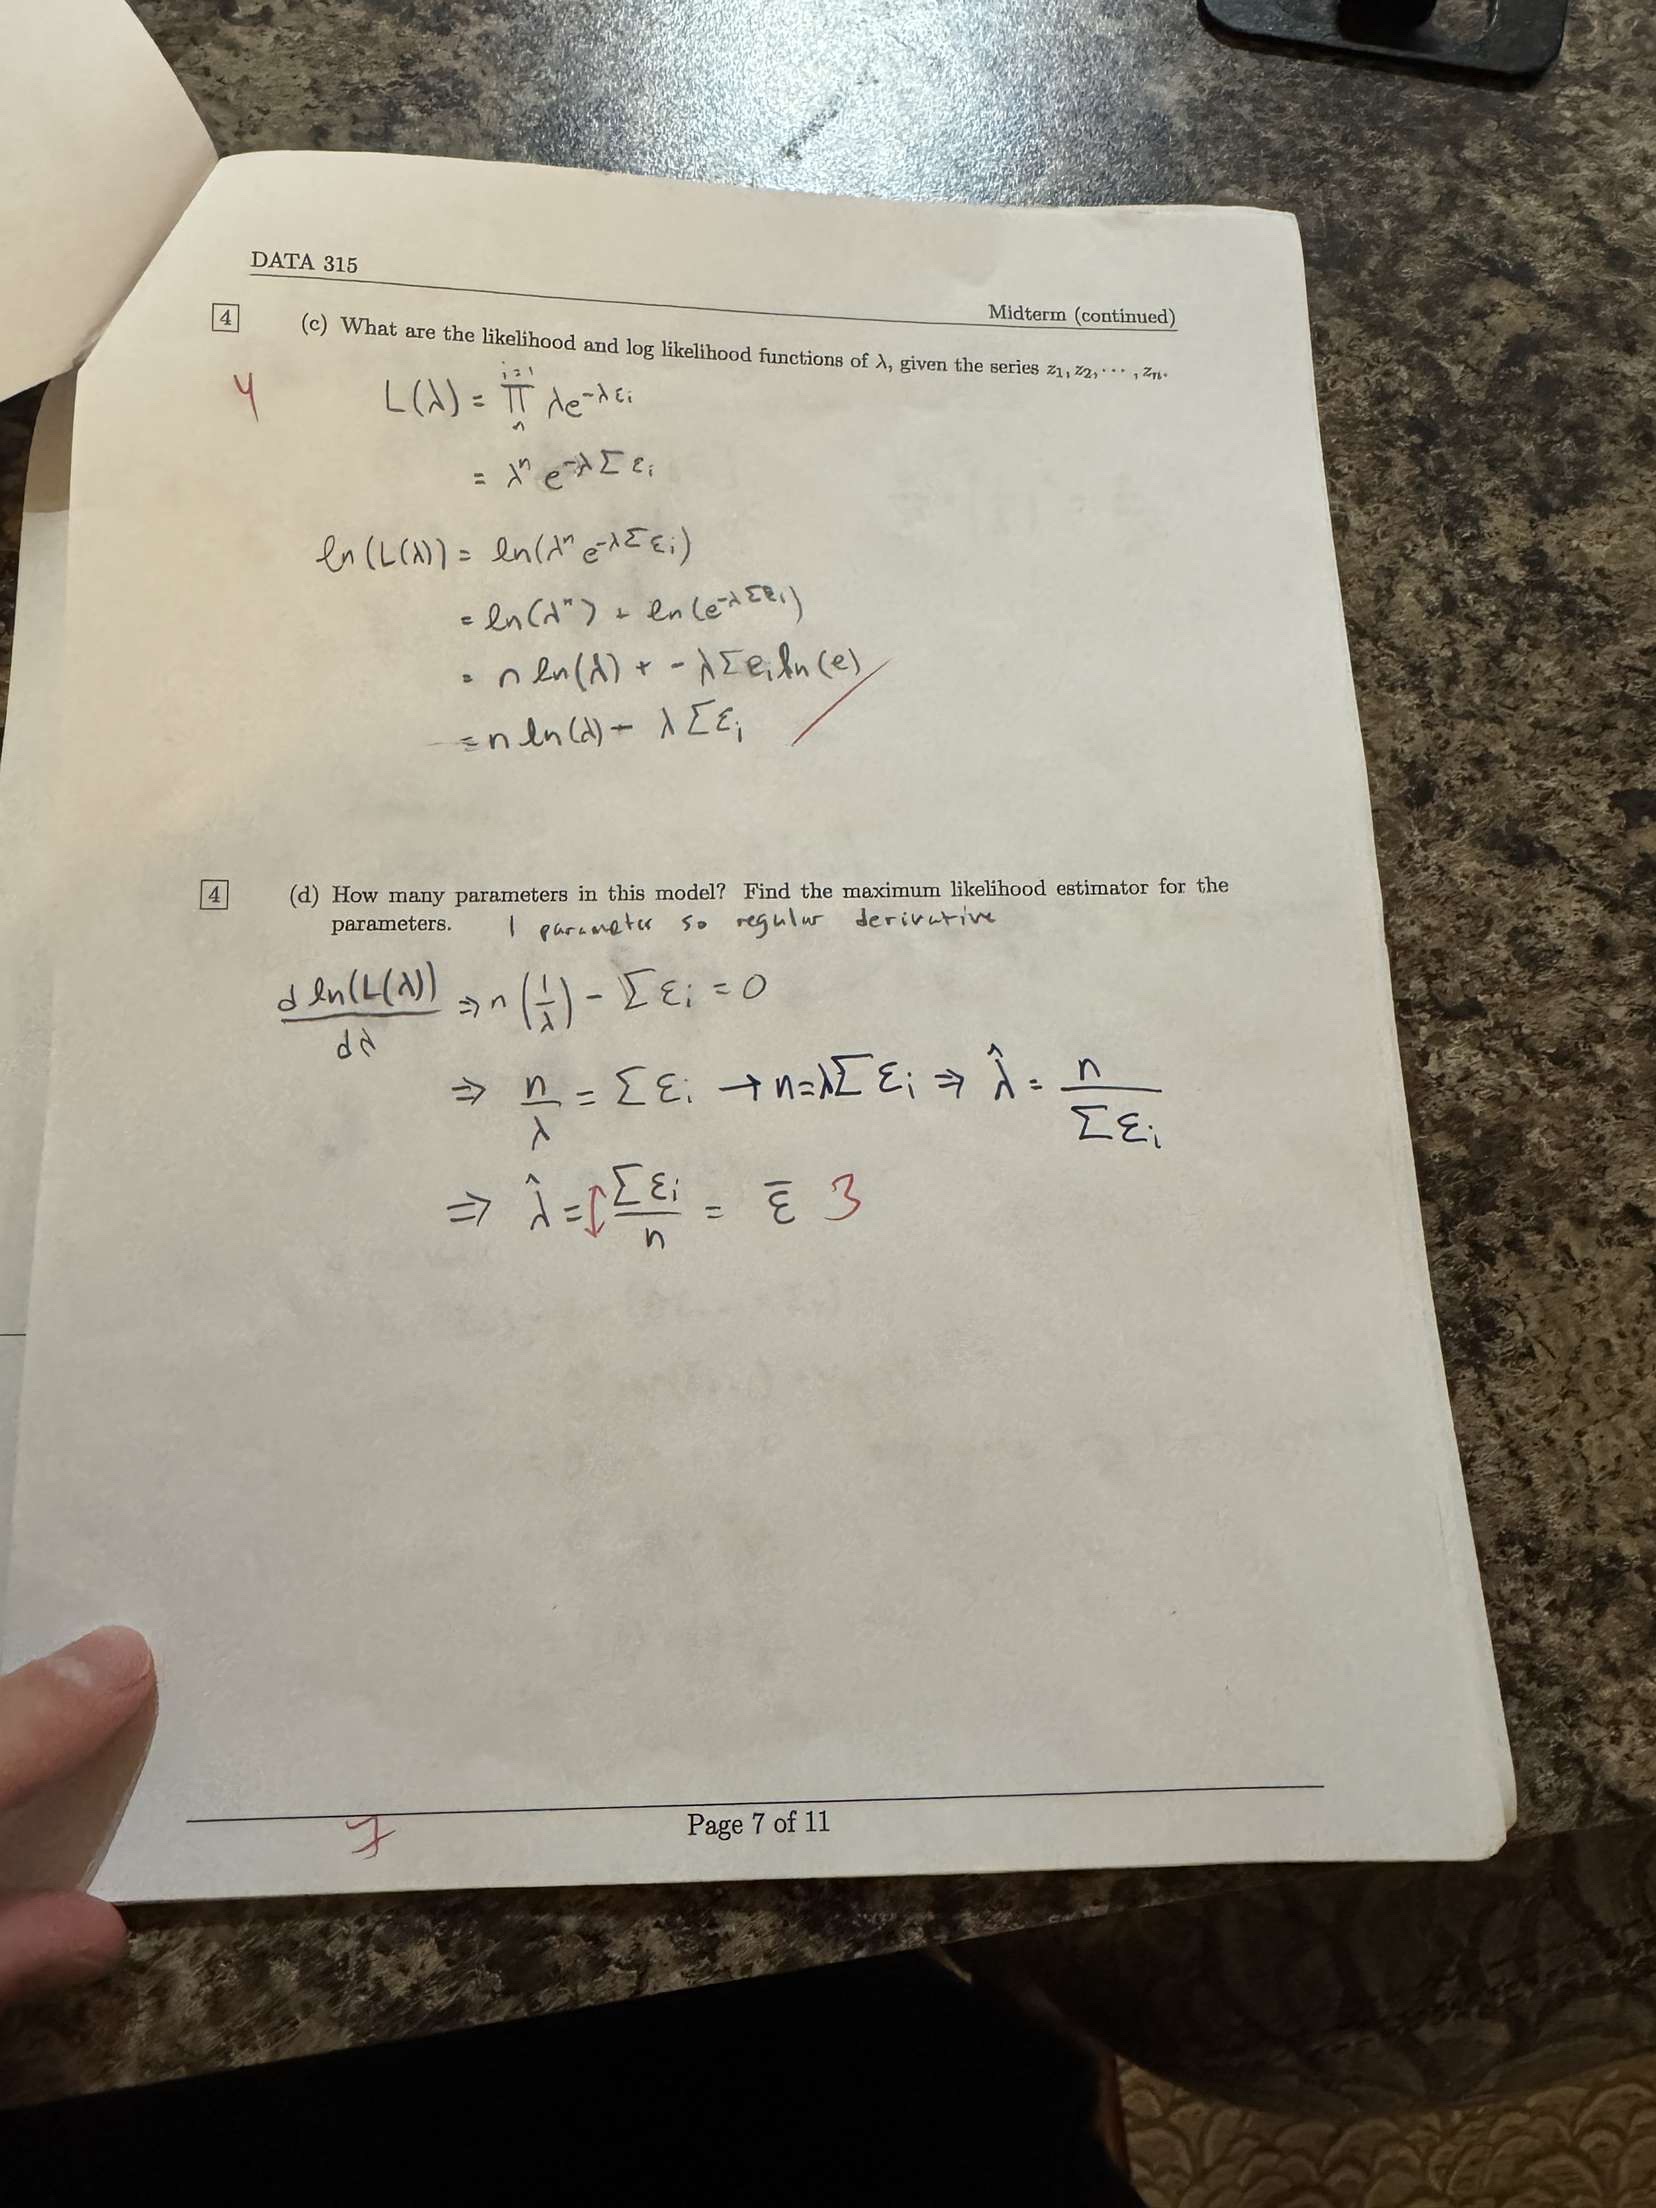 DATA 315
Midterm (continued)
4 (c) What are the likelihood and log likelihood functions of λ, given the series z₁, z₂, ⋯ , zₙ.
4
i=1
L(λ) = ∏ λe^(-λεᵢ)
n
= λⁿ e^(-λ Σ εᵢ)
ln(L(λ)) = ln(λⁿ e^(-λΣεᵢ))
= ln(λⁿ) + ln(e^(-λΣεᵢ))
= n ln(λ) + -λΣεᵢ ln(e)
= n ln(λ) - λ Σεᵢ
4 (d) How many parameters in this model? Find the maximum likelihood estimator for the
parameters. 1 parameter so regular derivative
d ln(L(λ))/dλ ⇒ n(1/λ) - Σεᵢ = 0
⇒ n/λ = Σεᵢ → n=λΣεᵢ ⇒ λ̂ = n/Σεᵢ
⇒ λ̂ = ↕ Σεᵢ/n = ε̄ 3
7
Page 7 of 11